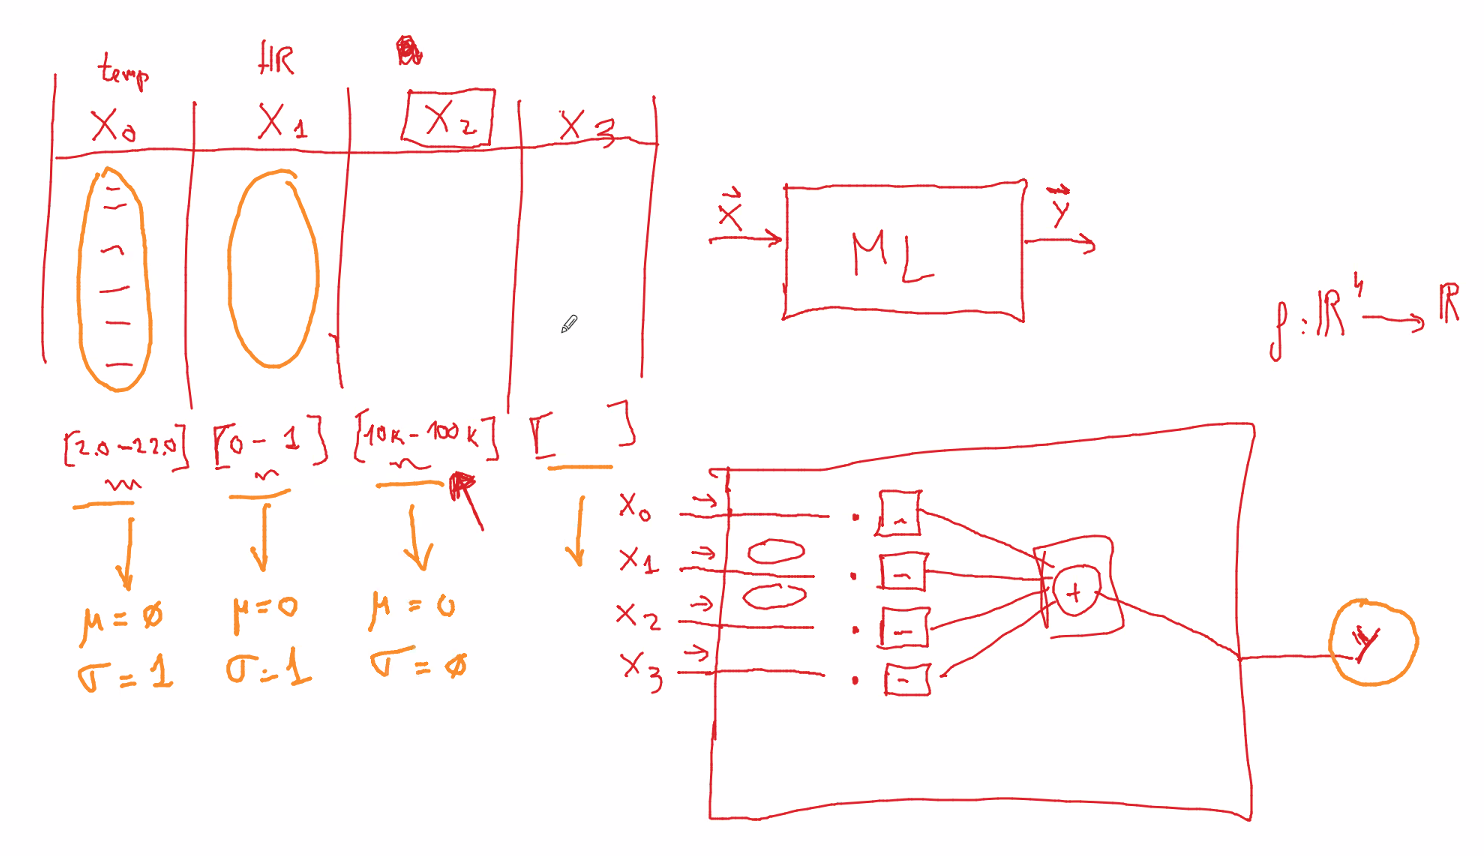 temp HR
X0 X1 X2 X3
[2.0-22.0] [0-1] [10K-100K] [ ]
μ=ø μ=0 μ=0
σ=1 σ=1 σ=ø
X ML Y
f: ℝ⁴ → ℝ
X0
X1
X2
X3
+
Y